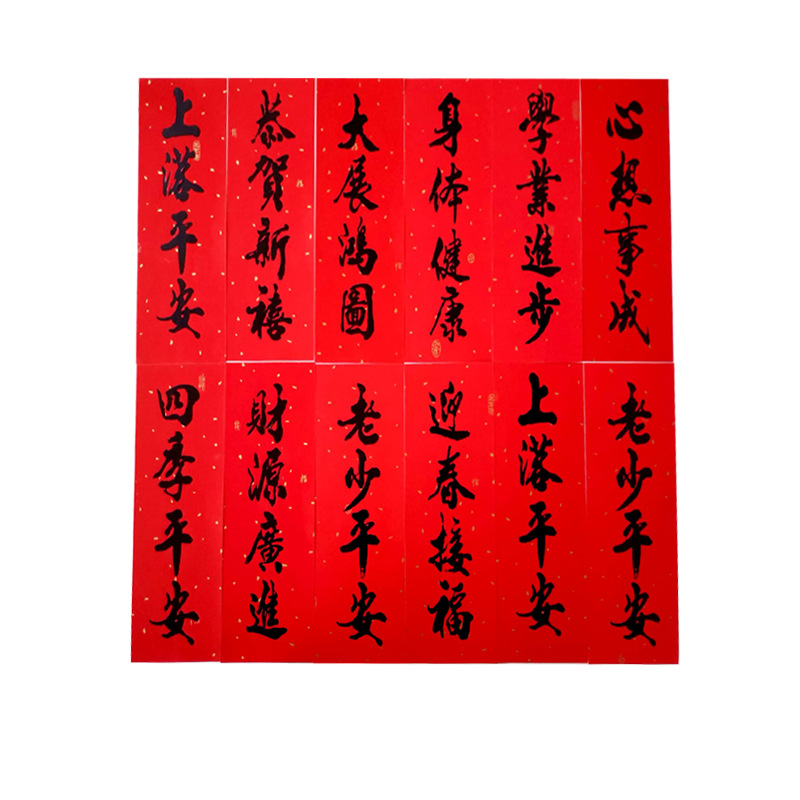 上落平安
恭賀新禧
大展鴻圖
身体健康
學業進步
心想事成
四季平安
財源廣進
老少平安
迎春接福
上落平安
老少平安